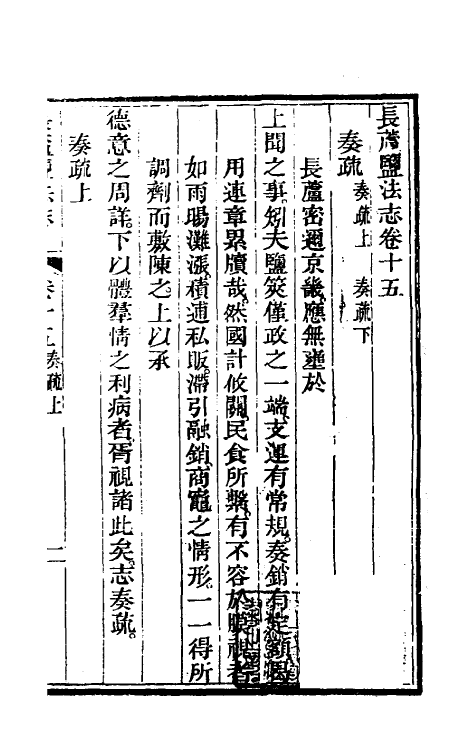 長蘆鹽法志卷十五
奏疏 奏疏上 奏疏下
長蘆密邇京畿應無壅於
上聞之事矧夫鹽筴僅政之一端支運有常規奏銷有定額
用連章累牘哉然國計攸關民食所繫有不容於膜視者
如雨暘灘漲積逋私販滯引融銷商竈之情形一一得所
調劑而敷陳之上以承
德意之周詳下以體羣情之利病者胥視諸此矣志奏疏
奏疏上
卷十五 奏疏上 一